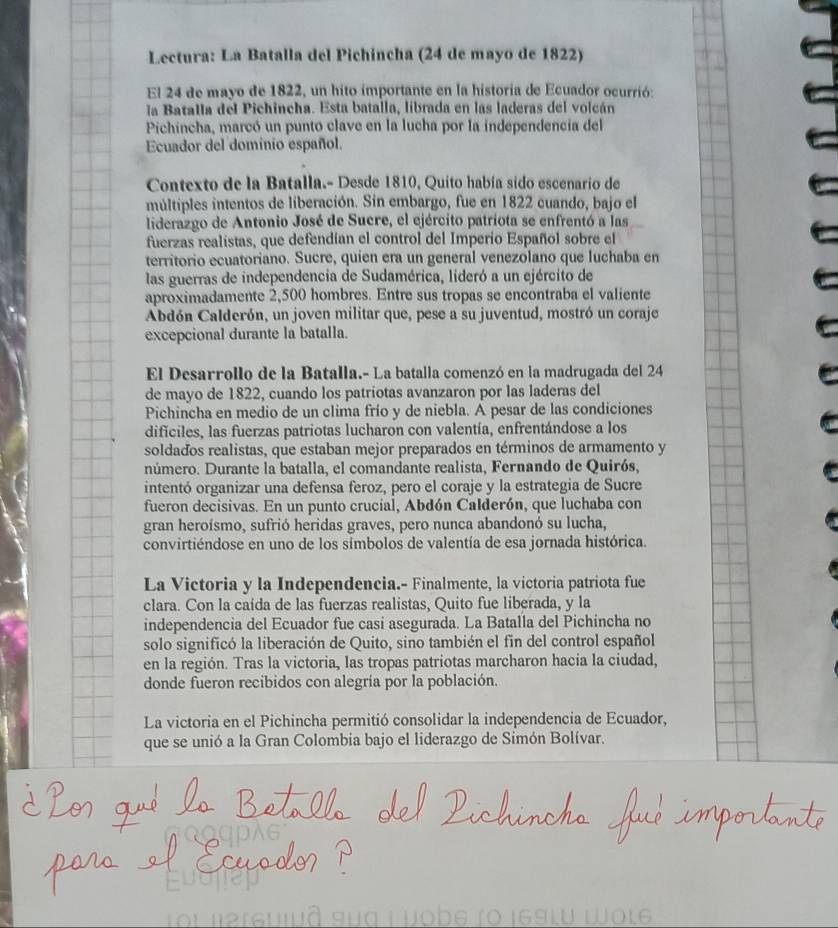 Lectura: La Batalla del Pichincha (24 de mayo de 1822)
El 24 de mayo de 1822, un hito importante en la historia de Ecuador ocurrió:
la Batalla del Pichincha. Esta batalla, librada en las laderas del volcán
Pichincha, marcó un punto clave en la lucha por la independencia del
Ecuador del dominio español.
Contexto de la Batalla.- Desde 1810, Quito había sido escenario de
múltiples intentos de liberación. Sin embargo, fue en 1822 cuando, bajo el
liderazgo de Antonio José de Sucre, el ejército patriota se enfrentó a las
fuerzas realistas, que defendían el control del Imperio Español sobre el
territorio ecuatoriano. Sucre, quien era un general venezolano que luchaba en
las guerras de independencia de Sudamérica, lideró a un ejército de
aproximadamente 2,500 hombres. Entre sus tropas se encontraba el valiente
Abdón Calderón, un joven militar que, pese a su juventud, mostró un coraje
excepcional durante la batalla.
El Desarrollo de la Batalla.- La batalla comenzó en la madrugada del 24
de mayo de 1822, cuando los patriotas avanzaron por las laderas del
Pichincha en medio de un clima frío y de niebla. A pesar de las condiciones
difíciles, las fuerzas patriotas lucharon con valentía, enfrentándose a los
soldados realistas, que estaban mejor preparados en términos de armamento y
número. Durante la batalla, el comandante realista, Fernando de Quirós,
intentó organizar una defensa feroz, pero el coraje y la estrategia de Sucre
fueron decisivas. En un punto crucial, Abdón Calderón, que luchaba con
gran heroísmo, sufrió heridas graves, pero nunca abandonó su lucha,
convirtiéndose en uno de los símbolos de valentía de esa jornada histórica.
La Victoria y la Independencia.- Finalmente, la victoria patriota fue
clara. Con la caída de las fuerzas realistas, Quito fue liberada, y la
independencia del Ecuador fue casi asegurada. La Batalla del Pichincha no
solo significó la liberación de Quito, sino también el fin del control español
en la región. Tras la victoria, las tropas patriotas marcharon hacia la ciudad,
donde fueron recibidos con alegría por la población.
La victoria en el Pichincha permitió consolidar la independencia de Ecuador,
que se unió a la Gran Colombia bajo el liderazgo de Simón Bolívar.
¿Por qué la Batalla del Pichincha fué importante
para el Ecuador?